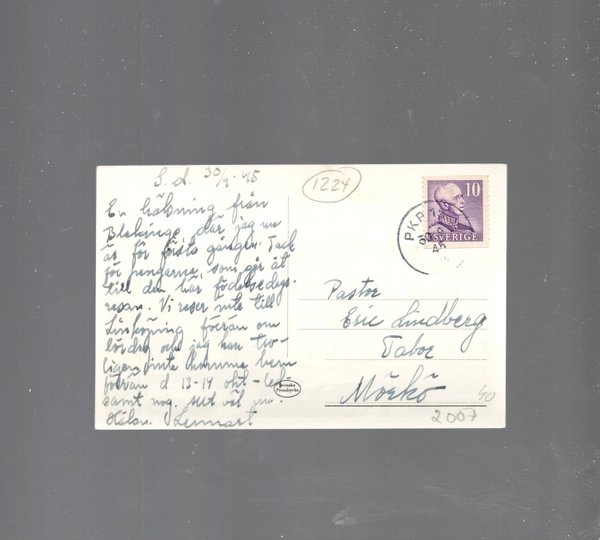 S. d. 30/9-45
En hälsning från
Blekinge, där jag nu
är för första gången. Tack
för pengarna, som går åt
till den här födelsedags-
resan. Vi reser inte till
Linköping förrän om
lördag och jag kan tro-
ligen inte komma hem
förrän d 13-14 okt -
samt nog. väl
Hälsn. Lennart
1224
10
SVERIGE
PKP
30
45
Pastor
Eric Lindberg
Tabor
Mörkö
Svenska
Pressbyrån
40
2007